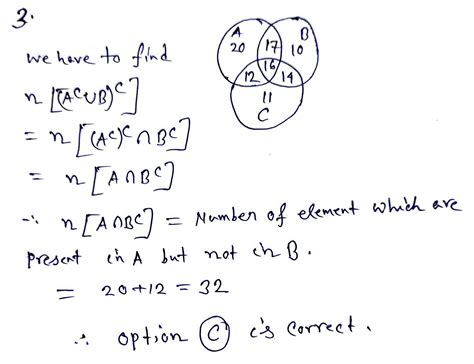 3.
A
20
17
B
10
16
12
14
11
C
we have to find
n [(Aᶜ∪B)ᶜ]
= n [(Aᶜ)ᶜ ∩ Bᶜ]
= n [A∩Bᶜ]
∵ n [A∩Bᶜ] = Number of element which are
present in A but not in B.
= 20+12 = 32
∴ option (C) is correct.